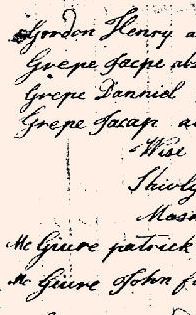 Gordon Henry a
Grepe Jacpe abs
Grepe Danniel
Grepe Jacap a
Wise
Shirly
Masa
Mc Giure patrick
Mc Giure John f